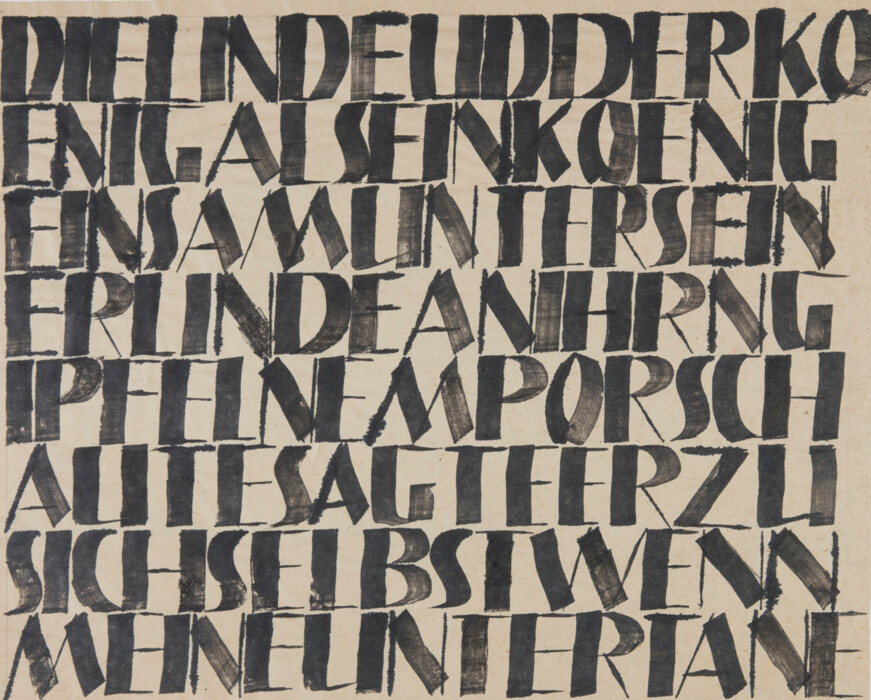 DIELINDEUDDERKO
ENIGALSEINKOENIG
EINSAMUNTERSEIN
ERLINDEANIHRNG
IPFELNEMPORSCH
AUTESAGTEERZU
SICHSELBSTWENN
MEINEUNTERTANE